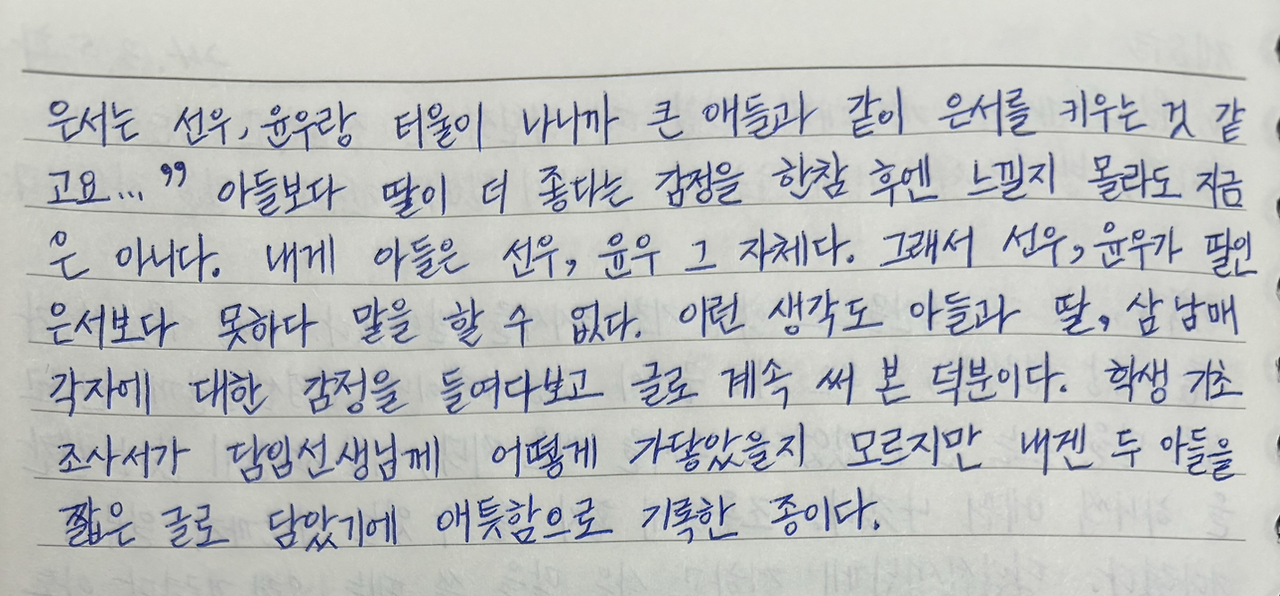 은서는 선우, 윤우랑 터울이 나니까 큰 애들과 같이 은서를 키우는 것 같
고요..." 아들보다 딸이 더 좋다는 감정을 한참 후엔 느낄지 몰라도 지금
은 아니다. 내게 아들은 선우, 윤우 그 자체다. 그래서 선우, 윤우가 딸인
은서보다 못하다 말을 할 수 없다. 이런 생각도 아들과 딸, 삼남매
각자에 대한 감정을 들여다보고 글로 계속 써 본 덕분이다. 학생 기초
조사서가 담임선생님께 어떻게 가닿았을지 모르지만 내겐 두 아들을
짧은 글로 담았기에 애틋함으로 기록한 종이다.